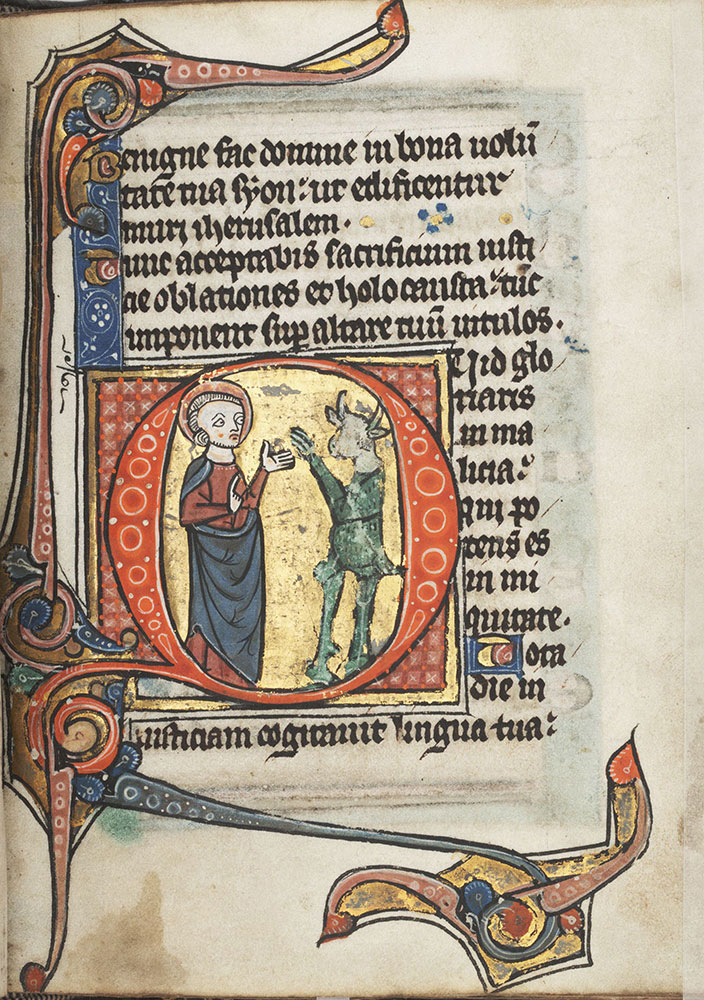 Benigne fac domine in bona uolū
tate tua syon: ut edificentur
muri iherusalem.
Tunc acceptabis sacrificium iusti
cie oblationes et holocausta: tūc
imponent sup altare tuū uitulos.
Quid glo
riaris
in ma
licia:
qui po
tens es
in ini
quitate.
Tota
die in
iusticiam cogitauit lingua tua: